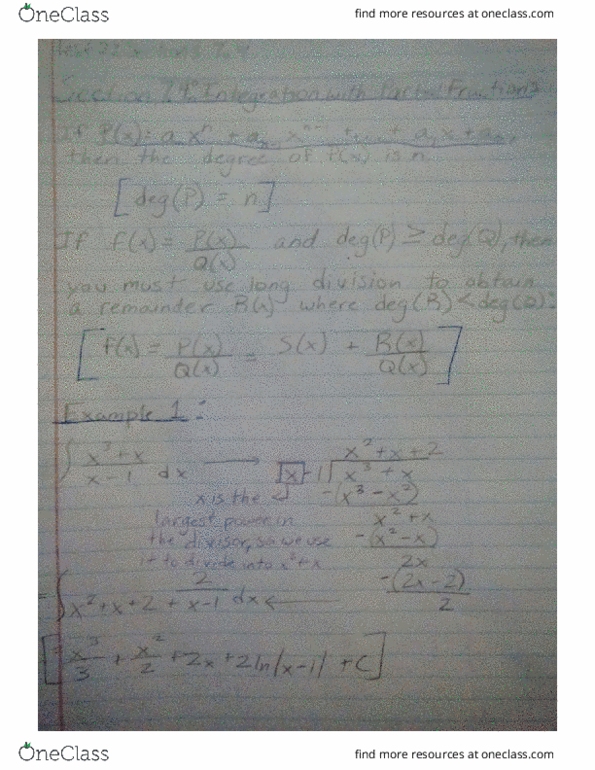 OneClass
find more resources at oneclass.com
Section 7.4: Integration with Partial Fractions
If P(x) = aₙxⁿ + aₙ₋₁xⁿ⁻¹ + ... + a₁x + a₀,
then the degree of P(x) is n.
[deg(P) = n]
If f(x) = P(x)/Q(x) and deg(P) ≥ deg(Q), then
you must use long division to obtain
a remainder R(x) where deg(R) < deg(Q):
[f(x) = P(x)/Q(x) = S(x) + R(x)/Q(x)]
Example 1:
x² + x + 2
∫ x³+x / x-1 dx → x-1 x³ + x
x is the -(x³ - x²)
largest power in x² + x
the divisor, so we use -(x² - x)
it to divide into x³+x 2x
-(2x - 2)
= ∫ x² + x + 2 + 2/x-1 dx ← 2
[= x³/3 + x²/2 + 2x + 2ln|x-1| + C]
OneClass
find more resources at oneclass.com